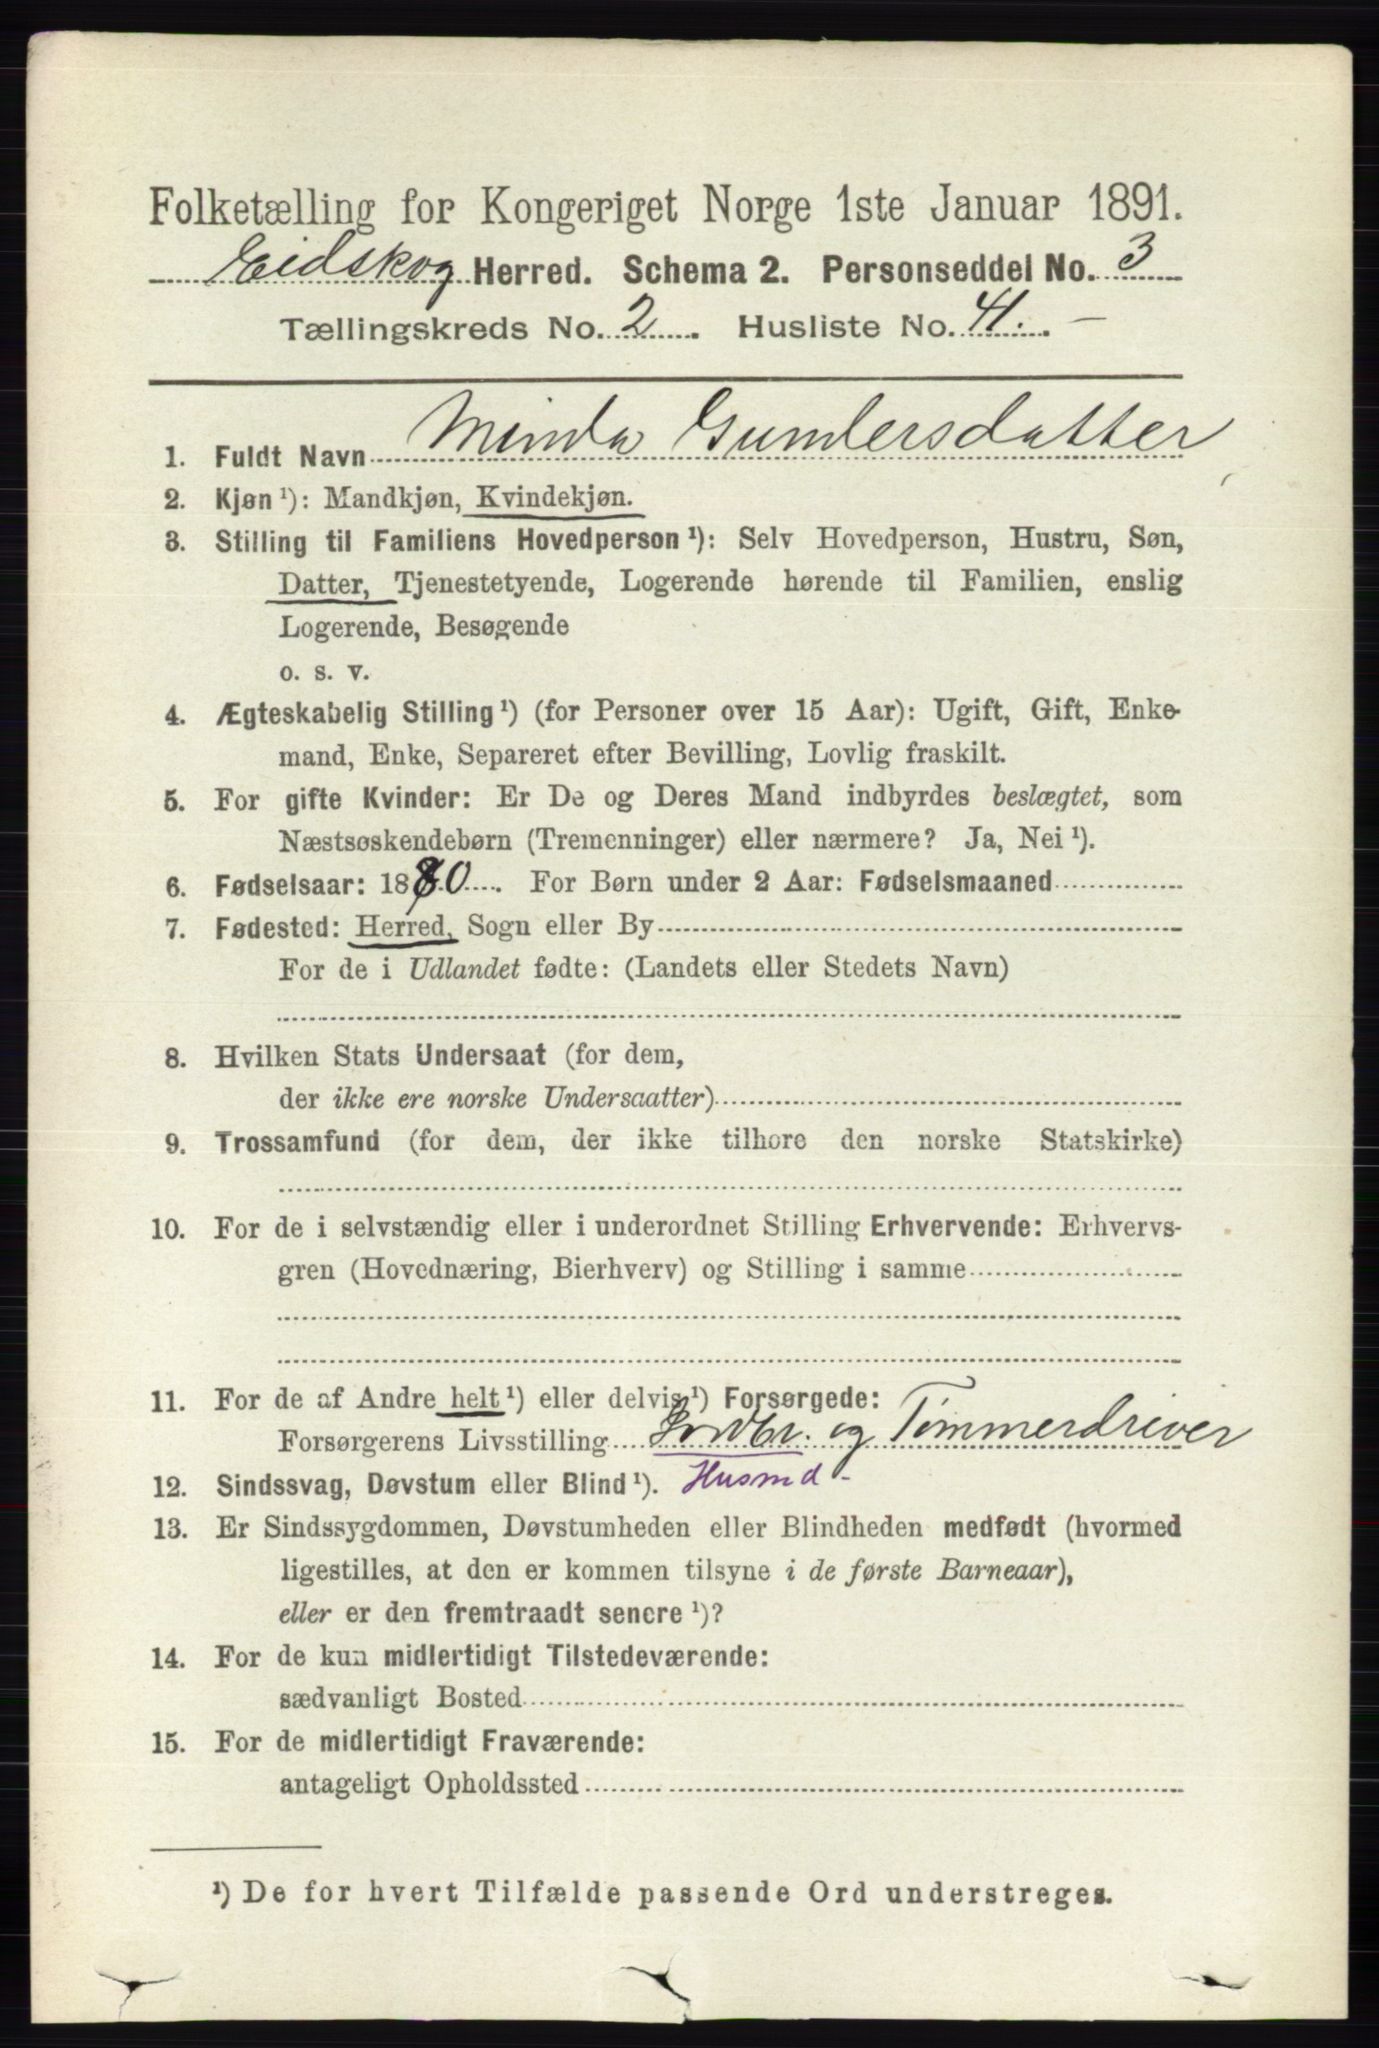 Folketælling for Kongeriget Norge 1ste Januar 1891.
Eidskog Herred. Schema 2. Personseddel No. 3
Tællingskreds No. 2. Husliste No. 41. -
1. Fuldt Navn Minda Gundersdatter
2. Kjøn ¹): Mandkjøn, Kvindekjøn.
3. Stilling til Familiens Hovedperson ¹): Selv Hovedperson, Hustru, Søn,
Datter, Tjenestetyende, Logerende hørende til Familien, enslig
Logerende, Besøgende
o. s. v.
4. Ægteskabelig Stilling ¹) (for Personer over 15 Aar): Ugift, Gift, Enke-
mand, Enke, Separeret efter Bevilling, Lovlig fraskilt.
5. For gifte Kvinder: Er De og Deres Mand indbyrdes beslægtet, som
Næstsøskendebørn (Tremenninger) eller nærmere? Ja, Nei ¹).
6. Fødselsaar: 1880. For Børn under 2 Aar: Fødselsmaaned
7. Fødested: Herred, Sogn eller By
For de i Udlandet fødte: (Landets eller Stedets Navn)
8. Hvilken Stats Undersaat (for dem,
der ikke ere norske Undersaatter)
9. Trossamfund (for dem, der ikke tilhøre den norske Statskirke)
10. For de i selvstændig eller i underordnet Stilling Erhvervende: Erhvervs-
gren (Hovednæring, Bierhverv) og Stilling i samme
11. For de af Andre helt ¹) eller delvis ¹) Forsørgede:
Forsørgerens Livsstilling Jordbr. og Tømmerdriver
12. Sindssvag, Døvstum eller Blind ¹). Husmd -
13. Er Sindssygdommen, Døvstumheden eller Blindheden medfødt (hvormed
ligestilles, at den er kommen tilsyne i de første Barneaar),
eller er den fremtraadt senere ¹)?
14. For de kun midlertidigt Tilstedeværende:
sædvanligt Bosted
15. For de midlertidigt Fraværende:
antageligt Opholdssted
¹) De for hvert Tilfælde passende Ord understreges.